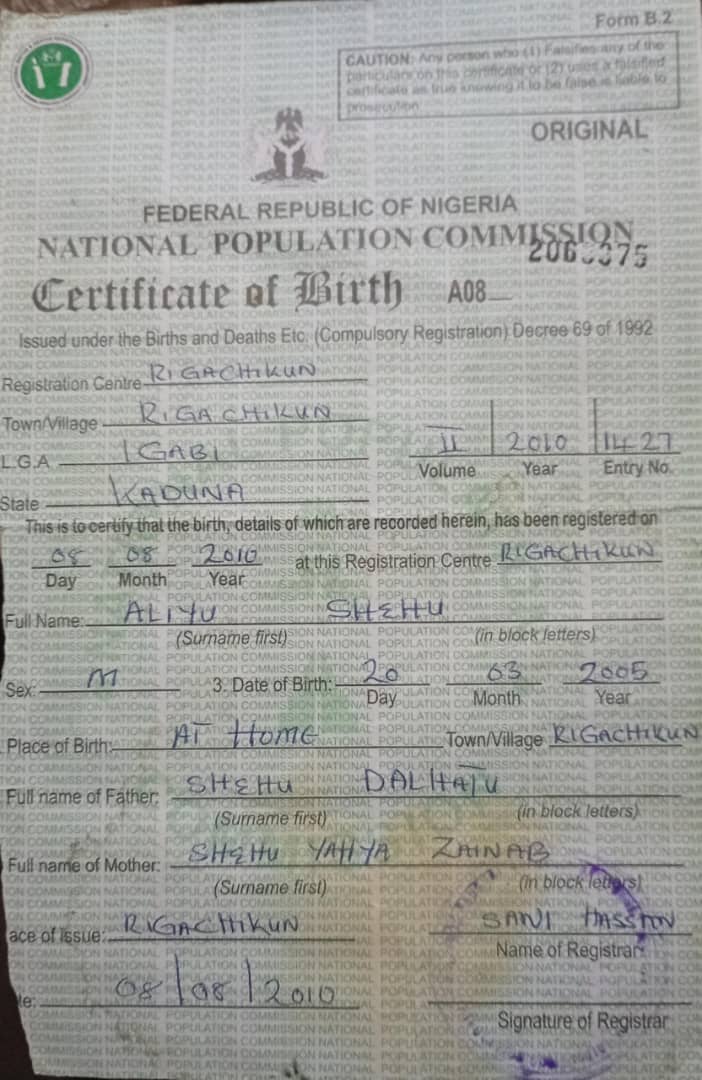 Form B.2
CAUTION: Any person who (1) Falsifies any of the
particulars on this certificate or (2) uses a falsified
certificate as true knowing it to be false is liable to
prosecution
ORIGINAL
FEDERAL REPUBLIC OF NIGERIA
NATIONAL POPULATION COMMISSION
Certificate of Birth A08
Issued under the Births and Deaths Etc. (Compulsory Registration) Decree 69 of 1992
Registration Centre RIGACHIKUN
Town/Village RIGACHIKUN
L.G.A IGABI
II 2010 1427
Volume Year Entry No.
State KADUNA
This is to certify that the birth, details of which are recorded herein, has been registered on
08 08 2010 at this Registration Centre RIGACHIKUN
Day Month Year
Full Name: ALIYU SHEHU
(Surname first) (in block letters)
Sex: M 3. Date of Birth: 20 03 2005
Day Month Year
Place of Birth: AT HOME Town/Village RIGACHIKUN
Full name of Father: SHEHU DALHATU
(Surname first) (in block letters)
Full name of Mother: SHEHU YAHYA ZAINAB
(Surname first) (in block letters)
ace of issue: RIGACHIKUN SANI
Name of Registrar
te: 08/08/2010
Signature of Registrar